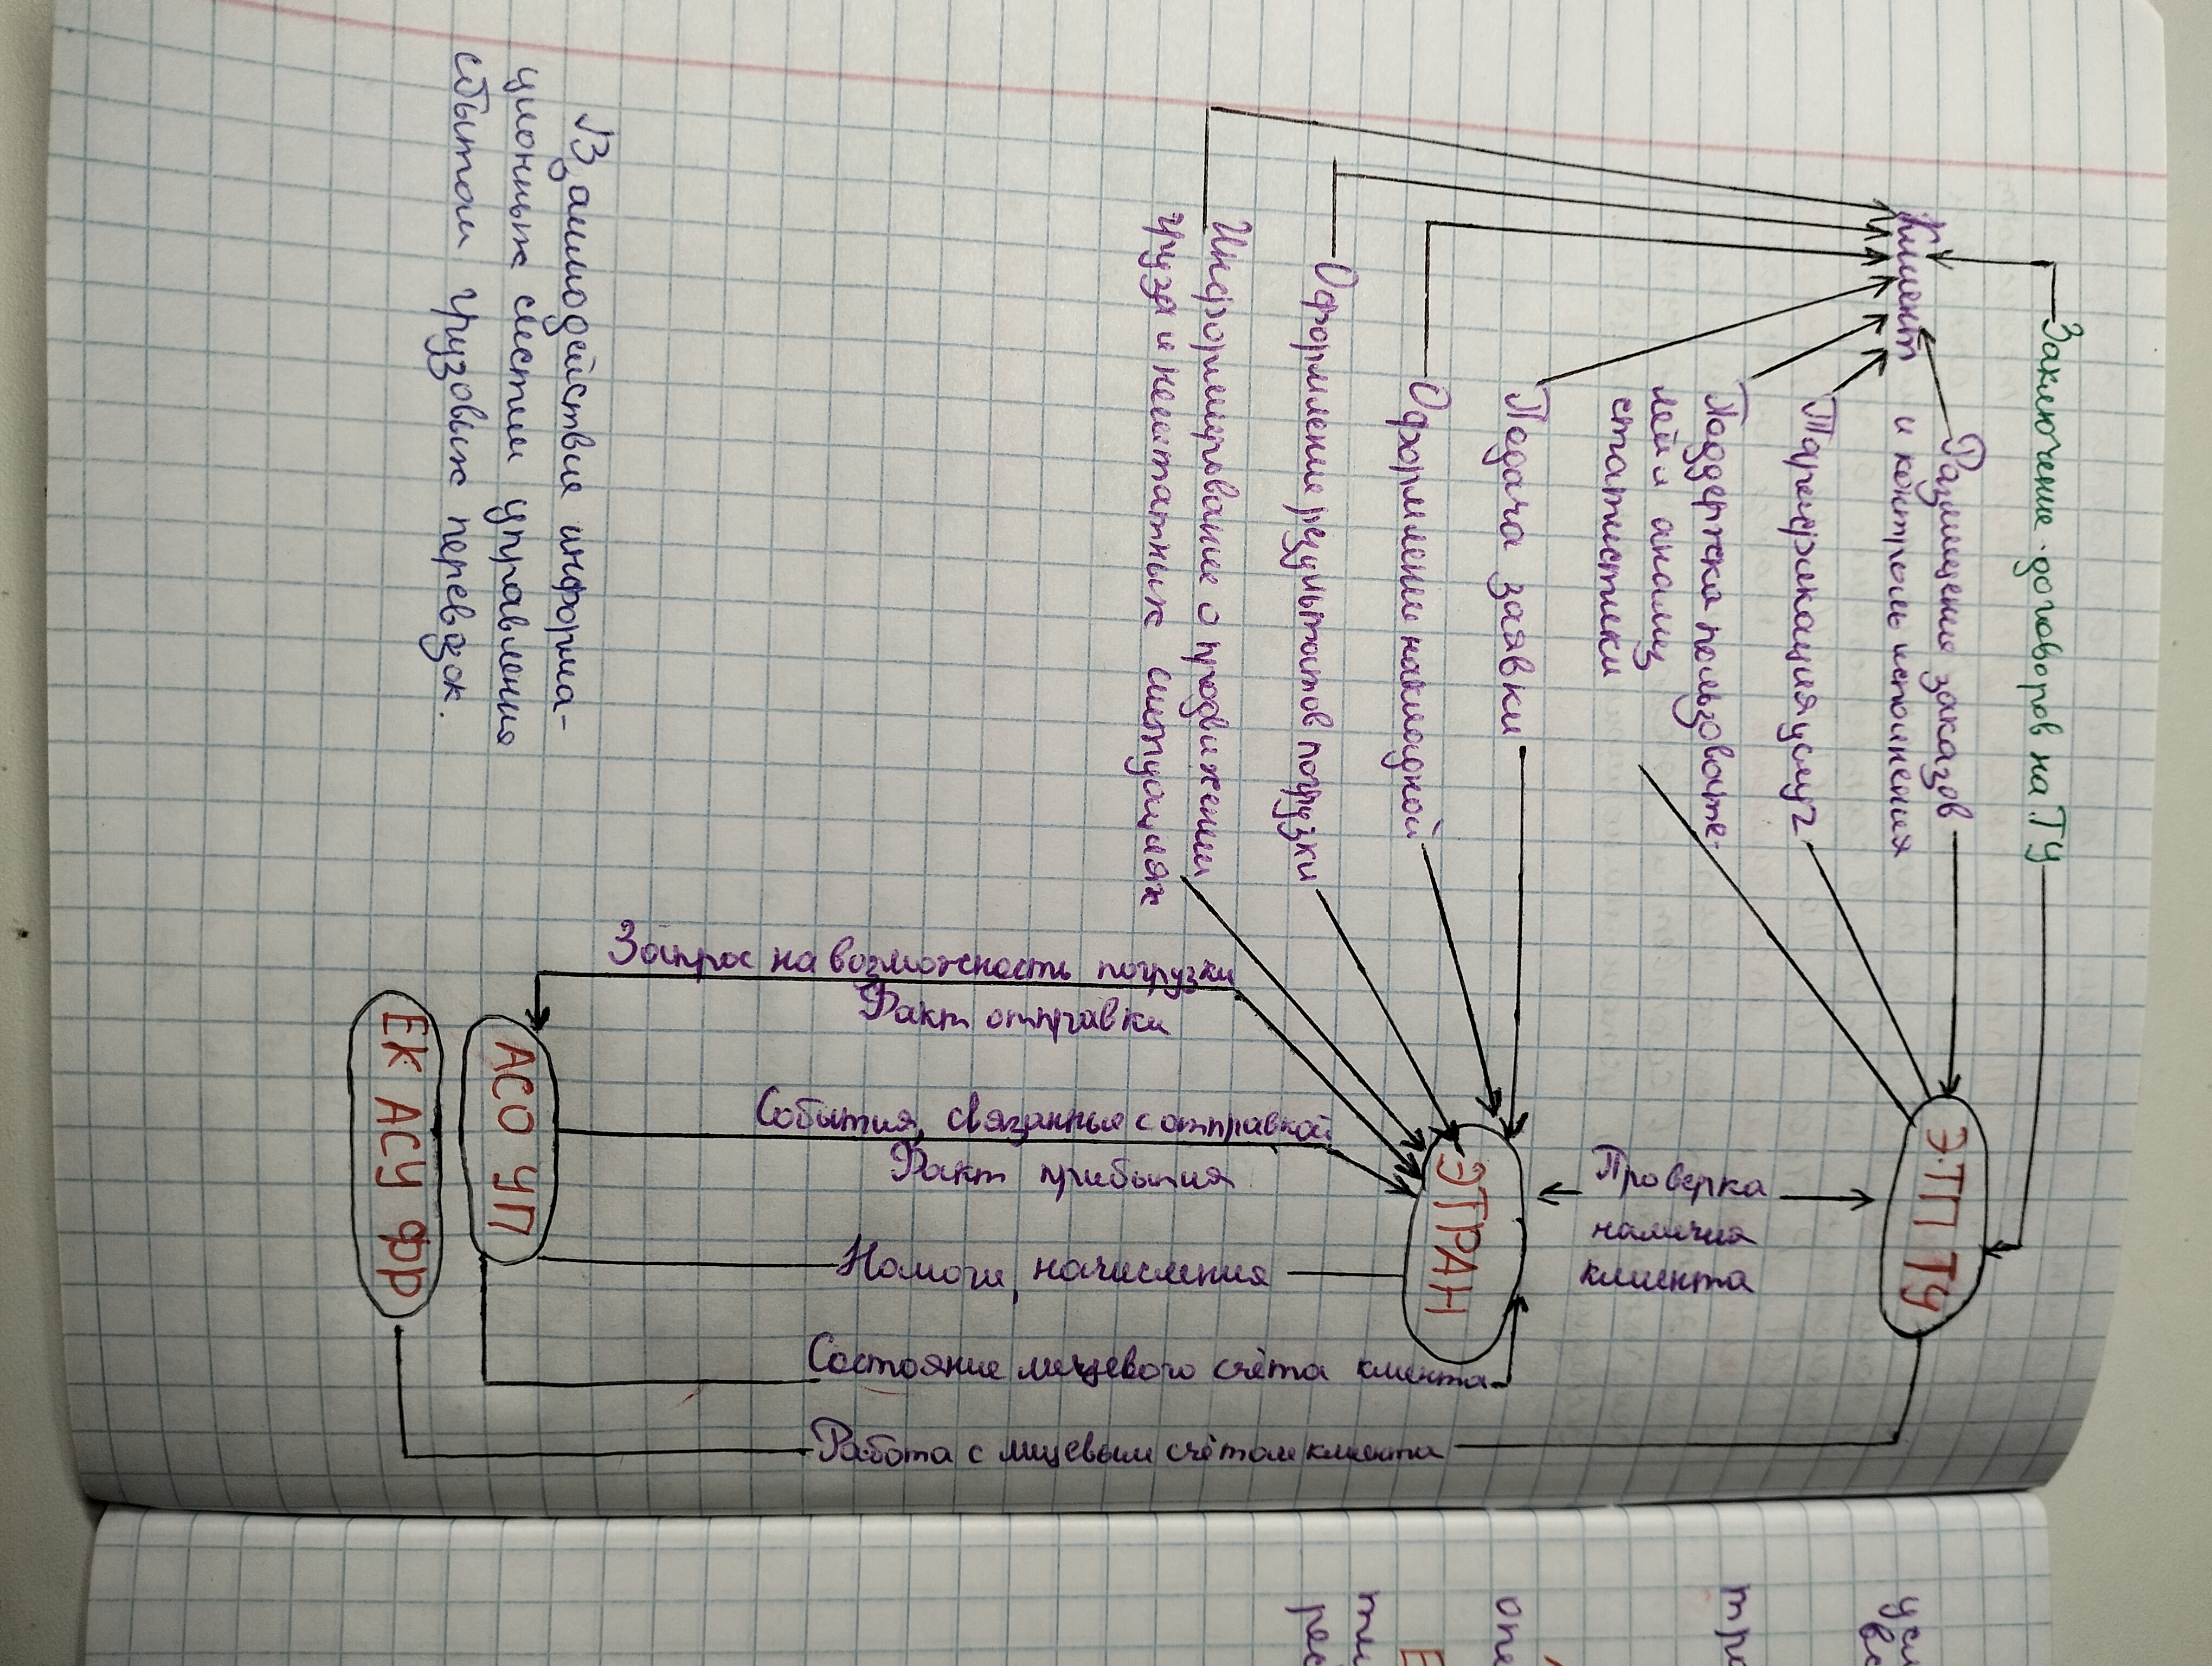 Заключение договоров на ТУ
Клиент
Размещение заказов
и контроль исполнения
Тарификация услуг
Поддержка пользовате-
лей и анализ
статистики
Подача заявки
Оформление накладной
Оформление результатов погрузки
Информирование о продвижении
груза и нештатных ситуациях
ЭТП ТУ
Проверка
наличия
клиента
ЭТРАН
Запрос на возможность погрузки
Факт отправки
События, связанные с отправкой
Факт прибытия
Налоги, начисления
Состояние лицевого счёта клиента
Работа с лицевым счётом клиента
АСО УП
ЕК АСУ ФР
Взаимодействие информа-
ционных систем управления
сбытом грузовых перевозок.